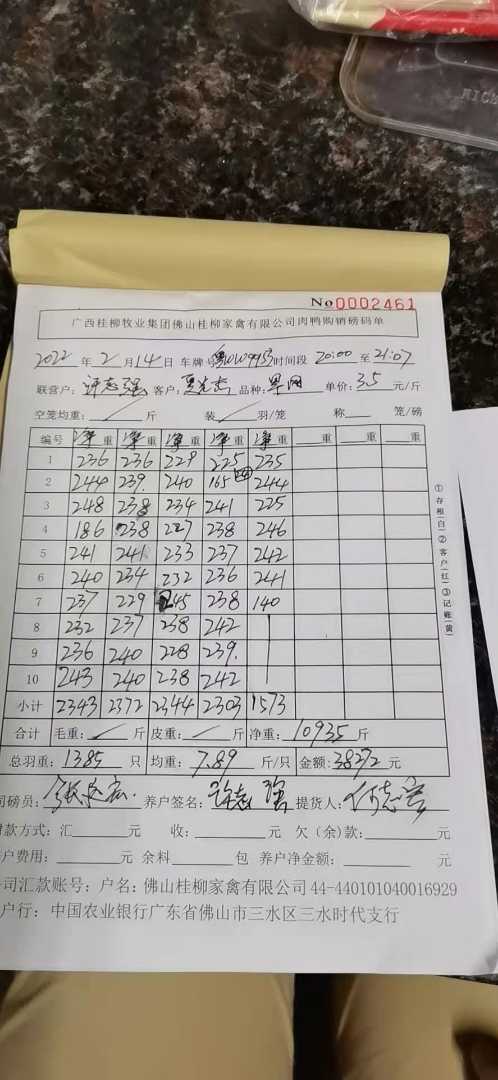 No 0002461
广西桂柳牧业集团佛山桂柳家禽有限公司肉鸭购销磅码单
2022 年 2 月 14 日 车牌号 粤 时间段 20:00 至 21:07
联营户: 许志强 客户: 品种: 单价: 3.5 元/斤
空笼均重: 斤 装 羽/笼 称 笼/磅
编号 净重 净重 净重 净重 净重 重 重 重
1 236 236 229 225 235
2 244 239. 240 165 244
3 248 238 234 241 225
4 186 238 227 238 246
5 241 241 233 237 242
6 240 234 232 236 241
7 237 229 245 238 140
8 232 237 238 242
9 236 240 228 239.
10 243 240 238 242
小计 2343 2372 2344 2303 1573
合计 毛重: 斤 皮重: 斤 净重: 10935 斤
总羽重: 1385 只 均重: 7.89 斤/只 金额: 38272 元
司磅员: 养户签名: 许志强 提货人:
付款方式: 汇 元 收: 元 欠(余)款: 元
户费用: 元 余料 包 养户净金额: 元
司汇款账号: 户名: 佛山桂柳家禽有限公司 44-440101040016929
户行: 中国农业银行广东省佛山市三水区三水时代支行
①存根(白)②客户(红)③记账(黄)